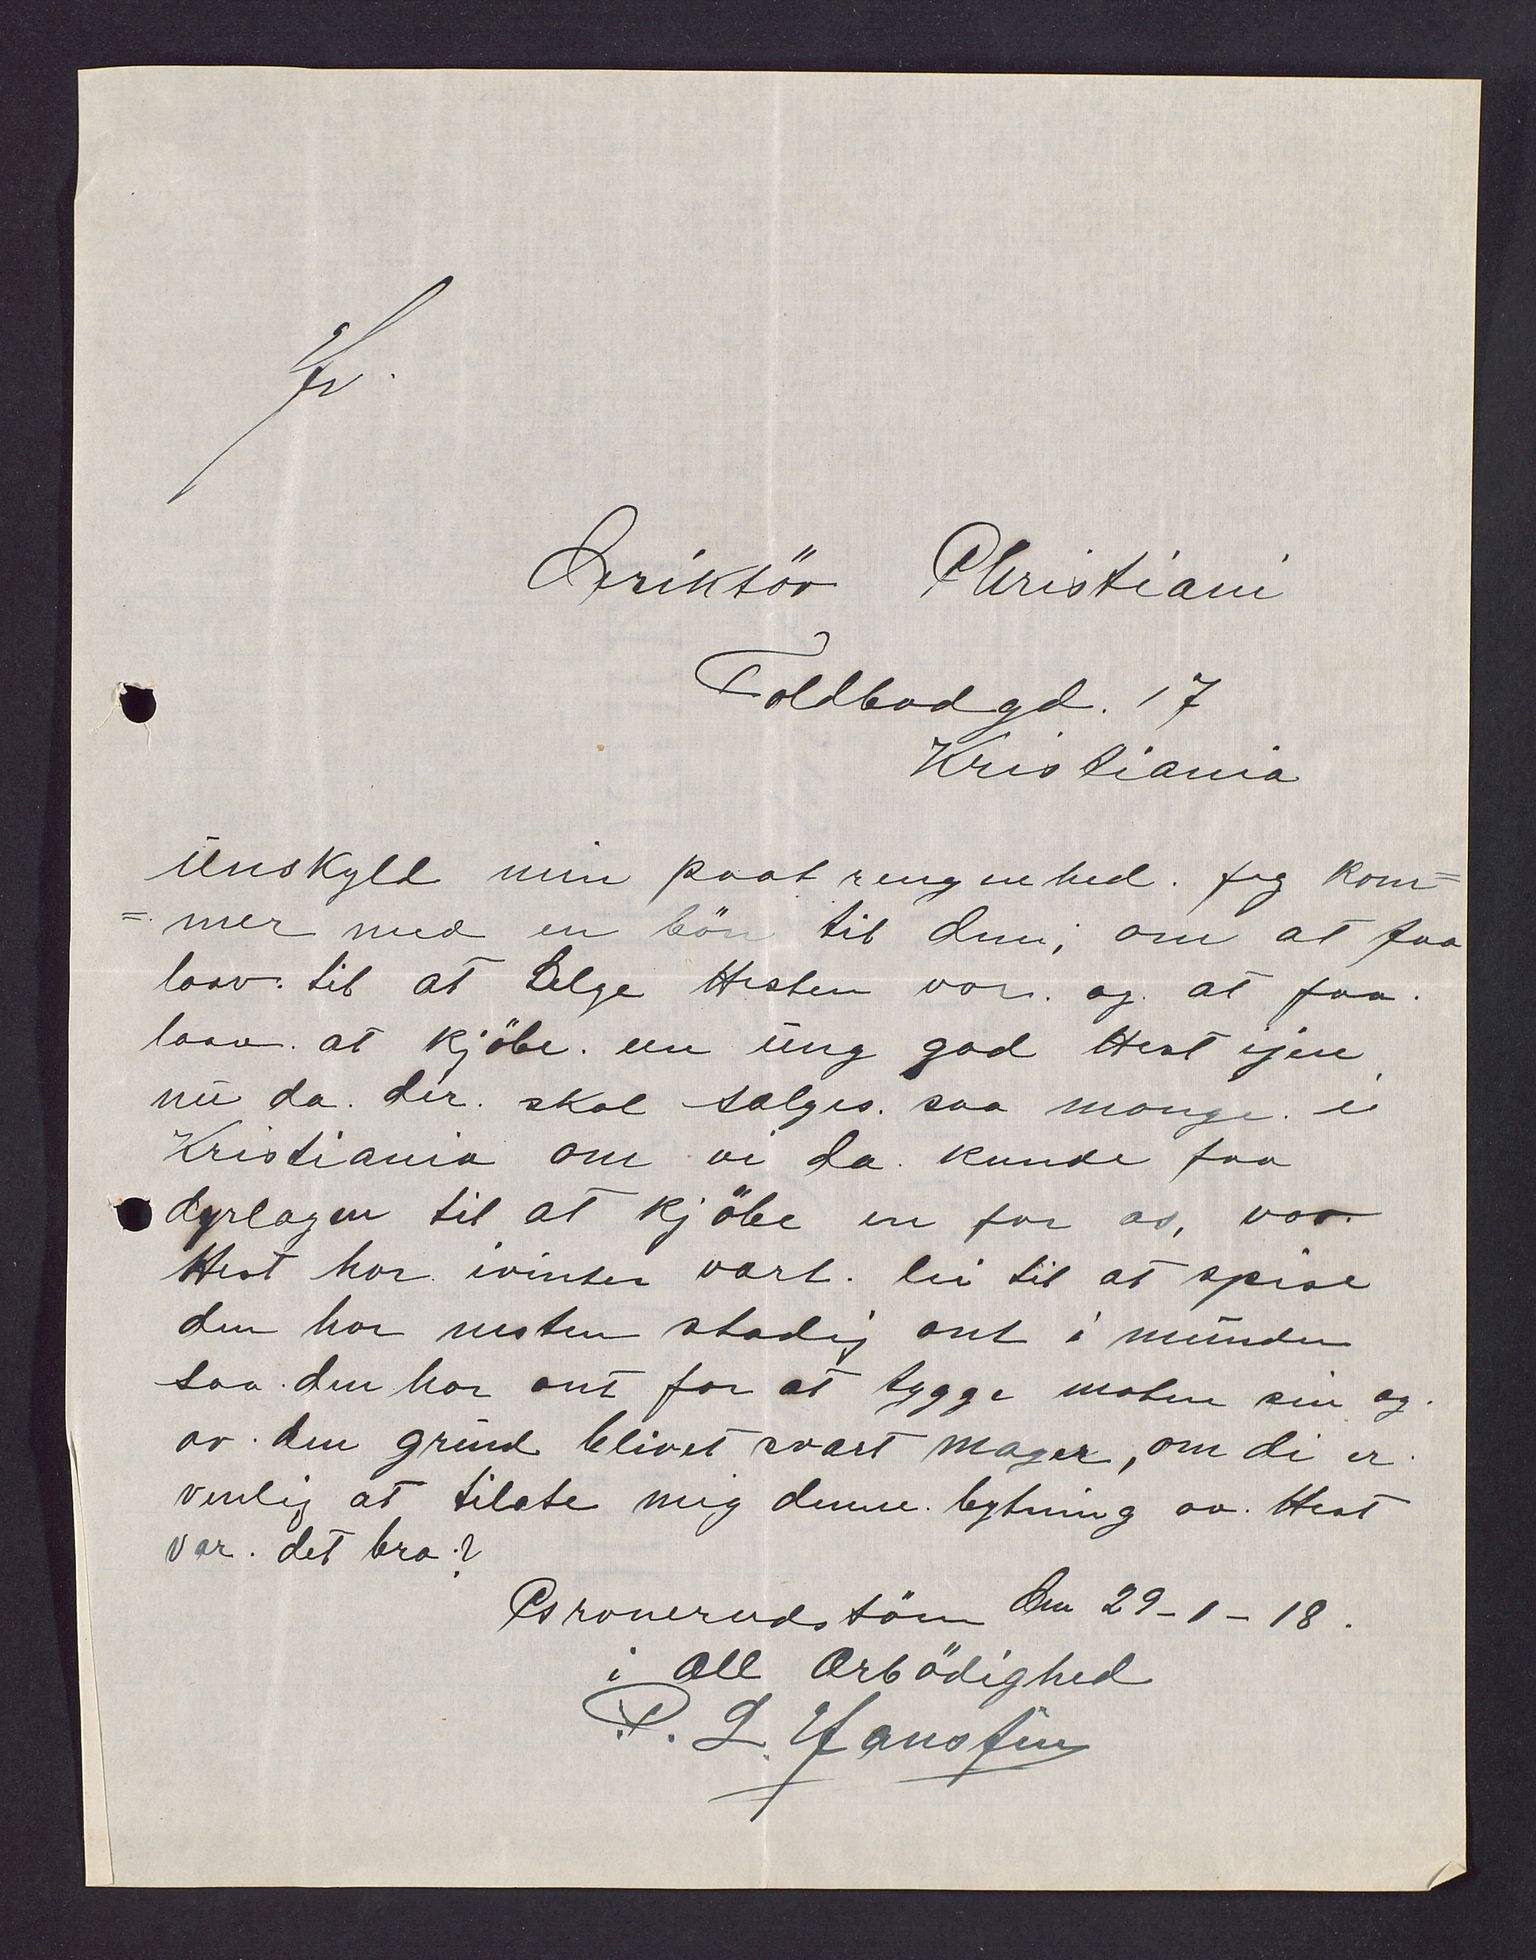 Hr.
Deriktör Christiani
Toldbodgd. 17
Kristiania
Unskyld min paatrengenhed. Jeg kom=
=mer med en bön til dem; om at faa
laav. til at Selge Hesten vor. og. at faa.
laav. at kjöbe. en ung god Hest igen,
nu da. der. skal salges. saa mange. i
Kristiania om vi da. kunde faa
dyrlagen til at kjöbe en for os, vor.
Hest har ivinter vart. lei til at spise
den har nesten stadig ont i munden
saa. den har ont for at tygge maten sin og.
av. den grund blivet svart mager, om di er.
venlig at tilate mig denne. bytning av. Hest
var. det bra.?
den 29-1-18.
i all ærbödighed
P. L. Hansen